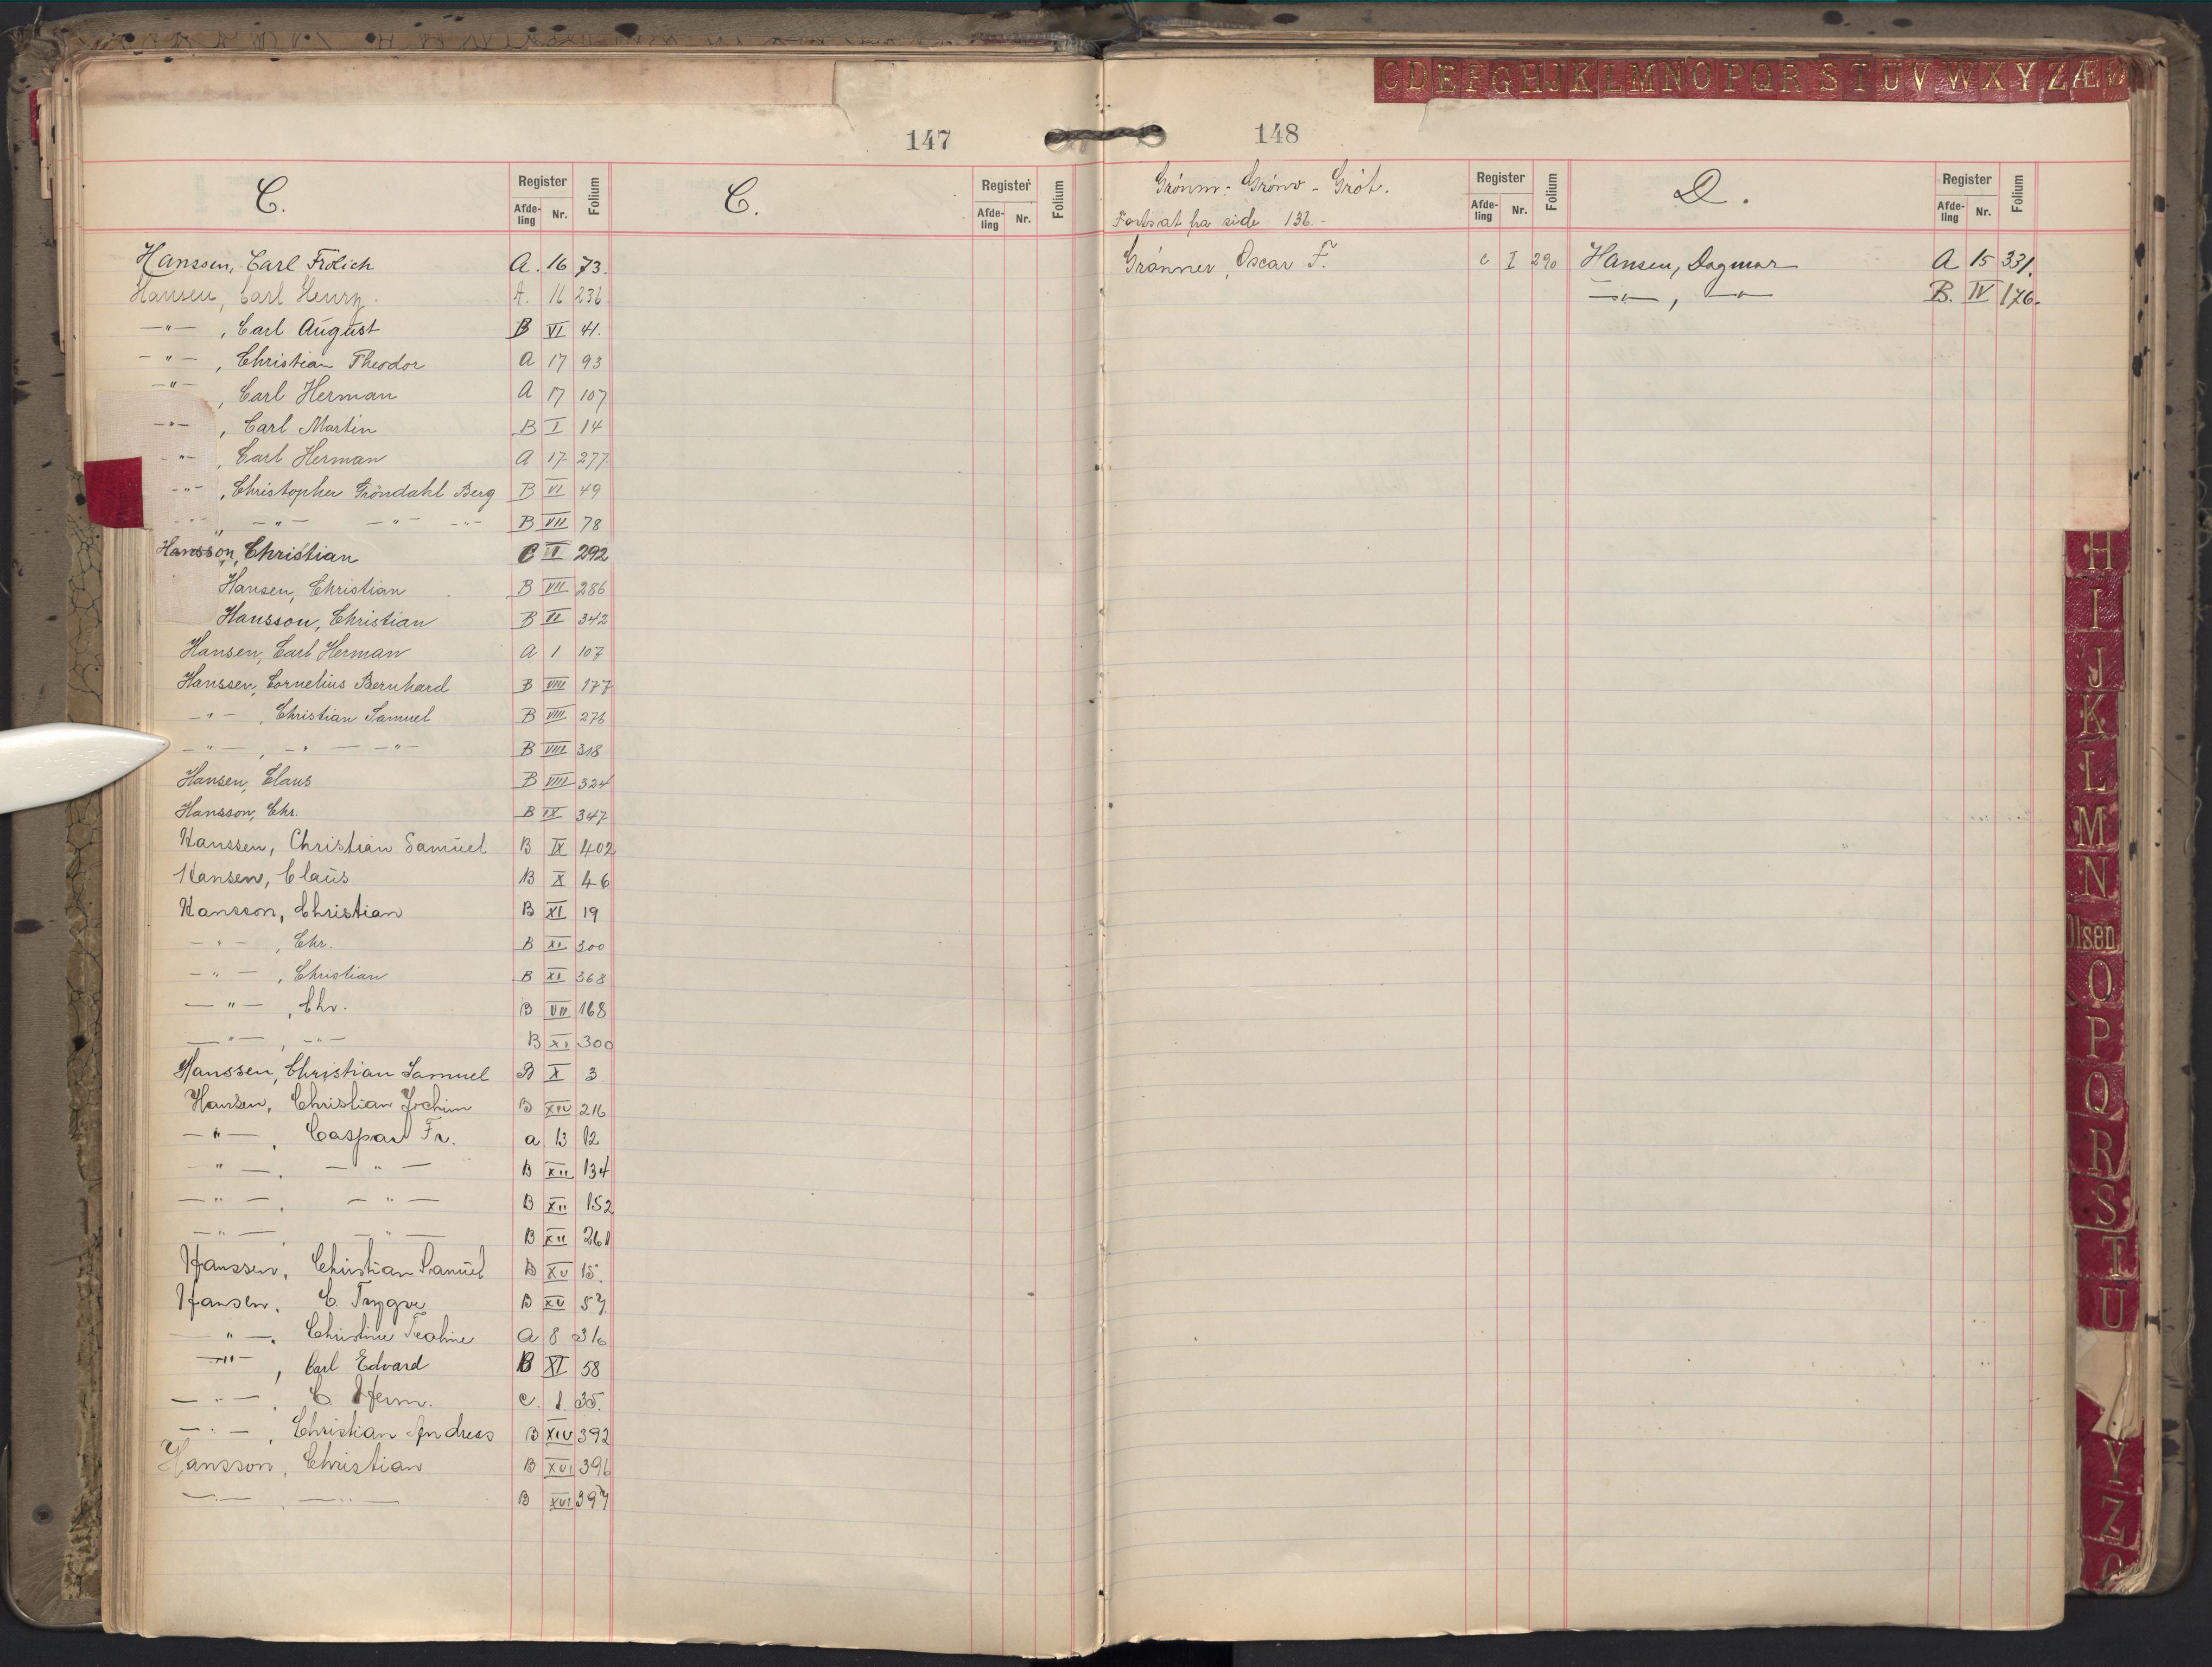 147
C.
Register
Afde-
ling
Nr.
Folium
Hanssen, Carl Frölich A. 16 73.
Hansen, Carl Henry. A. 16 236
—"— , Carl August B VI 41.
—"— , Christian Theodor A 17 93
—"— , Carl Herman A 17 107
—"— , Carl Martin B I 14
—"— , Carl Herman A 17 277
—"— , Christopher Gröndahl Berg B VI 49
—"— —"— —"— —"— B VII 78
Hansson, Christian C II 292
Hansen, Christian B VII 286
Hansson, Christian B VI 342
Hansen, Carl Herman A 1 107
Hanssen, Cornelius Bernhard B VIII 177
—"— , Christian Samuel B VIII 276
—"— , —"— —"— B VIII 318
Hansen, Claus B VIII 324
Hansson, Chr. B IX 347
Hanssen, Christian Samuel B IX 402
Hansen, Claus B X 46
Hansson, Christian B XI 19
—"— , Chr. B XI 300
—"— , Christian B XI 368
—"— , Chr. B VII 168
—"— , —"— B XI 300
Hanssen, Christian Samuel B X 3
Hansen, Christian Jochim B XIV 216
—"— , Caspar Fr. a 13 12
—"— , —"— B XII 134
—"— , —"— B XII 152
—"— , —"— B XII 261
Hanssen, Christian Samuel B XV 15.
Hansen, C. Trygve B XV 57
—"— , Christine A 8 316
—"— , Carl Edvard B XI 58
—"— , C. Herm. C. 1. 35.
—"— , Christian Andreas B XIV 392
Hansson, Christian B XVI 396
—"— , —"— B XVI 397
C.
Register
Afde-
ling
Nr.
Folium
148
Grönm - Grönv - Gröt.
Fortsat fra side 136.-
Register
Afde-
ling
Nr.
Folium
Grönner, Oscar F. C I 290
D.
Register
Afde-
ling
Nr.
Folium
Hansen, Dagmar A 15 331.
—"— , —"— B. IV 176.
C D E F G H J K L M N O P Q R S T U V W X Y Z Æ Ø
H
I
J
K
L
M
N
Olsen
O
P
Q
R
S
T
U
Y
Z